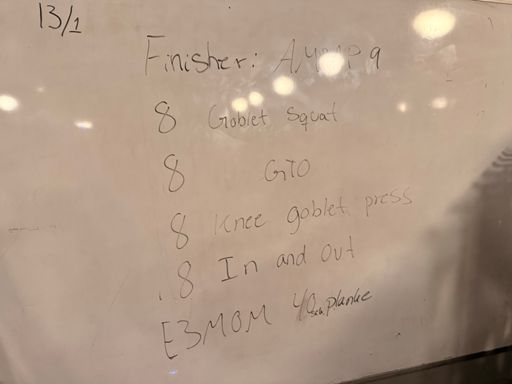 13/1
Finisher: AMRAP 9
8 Goblet Squat
8 GTO
8 Knee goblet press
8 In and Out
E3MOM 40sek planke